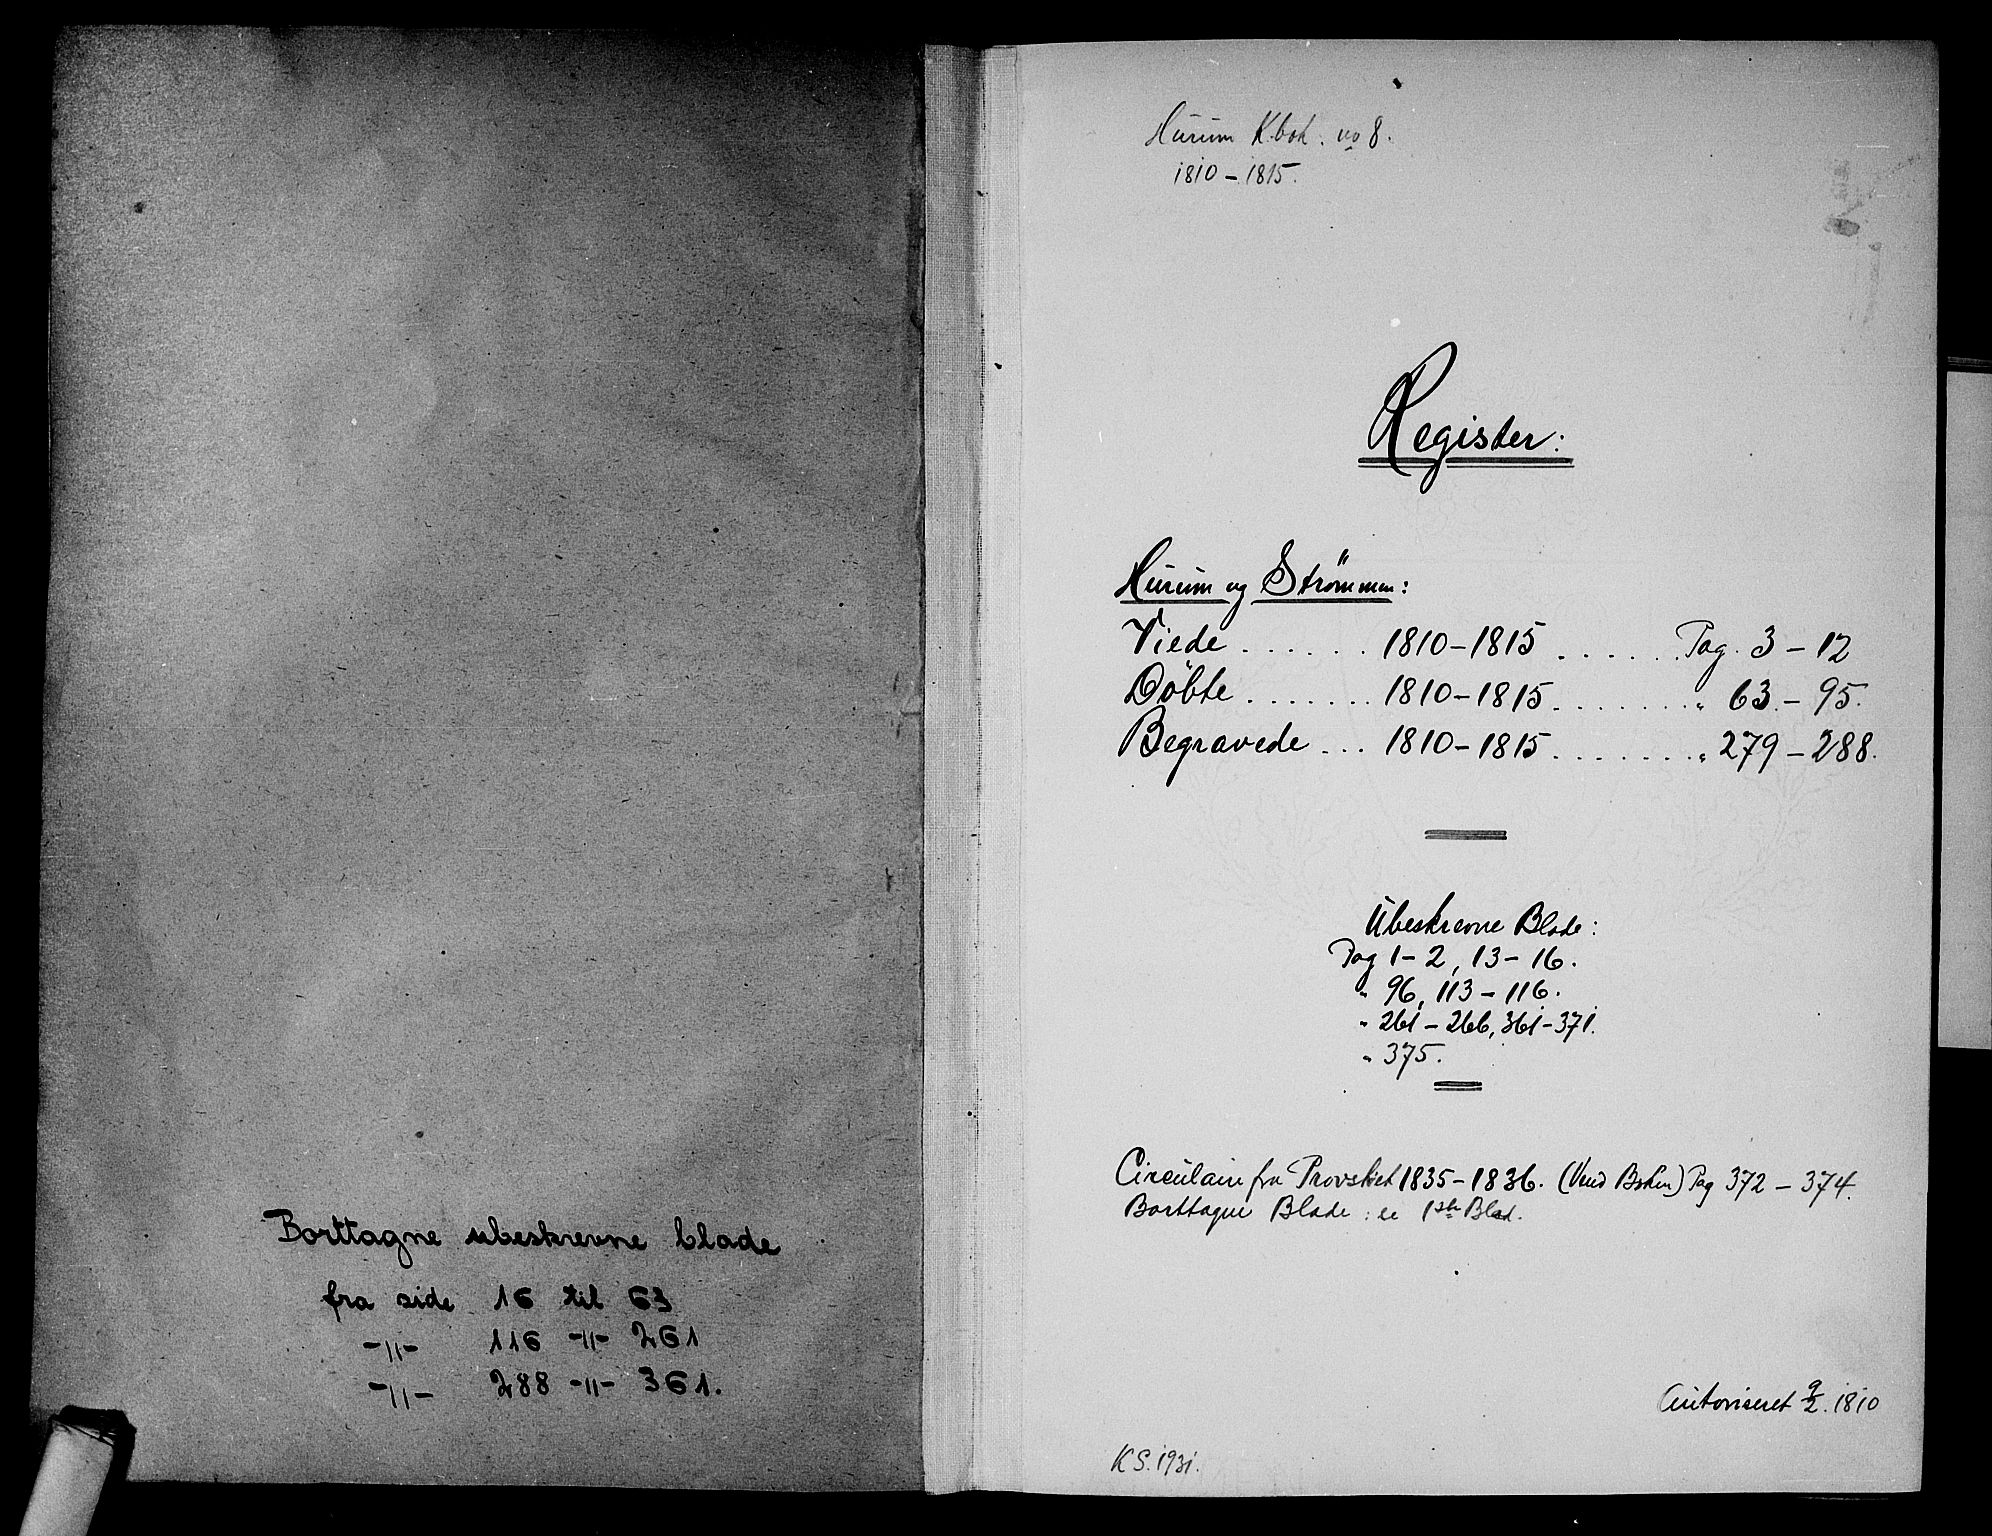 Borttagne ubeskrevne blade
fra side 16 til 63
-"- 116 -"- 261
-"- 288 -"- 361.
Hurum K.bok. no 8.
1810 - 1815.
Register:
Hurum og Strömmen:
Viede ...... 1810-1815 ...... Pag. 3 - 12
Döbte ....... 1810-1815 ....... " 63 - 95.
Begravede ... 1810-1815 ....... " 279 - 288.
Ubeskrevne Blade:
Pag 1- 2, 13- 16.
" 96, 113 - 116.
" 261 - 266, 361-371.
" 375.
Circulair fra Provstiet 1835-1836. (Vend Boken) Pag 372 - 374.
Borttagne Blade: se 1ste Blad.
Autoriseret 9/2. 1810
K S. 1931.